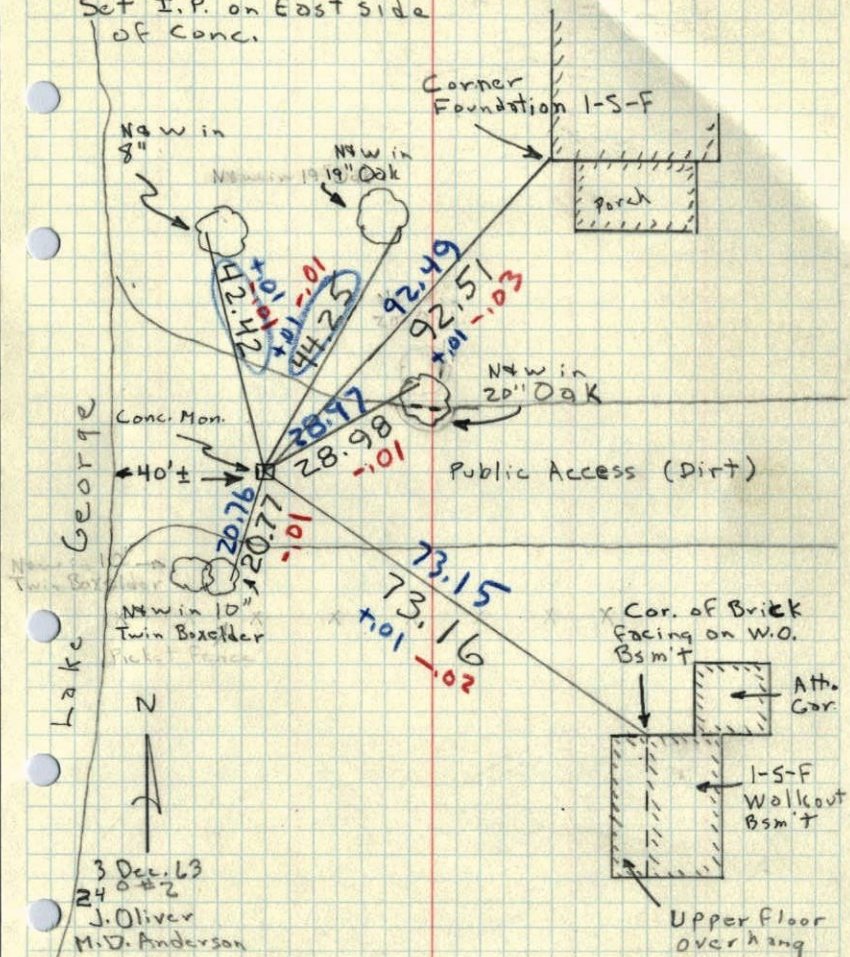 Set I.P. on East side
of Conc.
Corner
Foundation 1-S-F
N&W in
8"
N&W in
19" Oak
Porch
42.42
+.01
-.01
44.25
+.01
-.01
92.49
92.51
+.01
-.03
N&W in
20" Oak
28.97
28.98
-.01
Conc. Mon.
40'±
Public Access (Dirt)
Lake George
20.76
20.77
-.01
N&W in 10"
Twin Boxelder
Picket Fence
73.15
73.16
+.01
-.02
Cor. of Brick
facing on W.O.
Bsm't
Att.
Gar.
1-S-F
Walkout
Bsm't
Upper Floor
overhang
N
3 Dec. 63
24 0#2
J. Oliver
M.D. Anderson